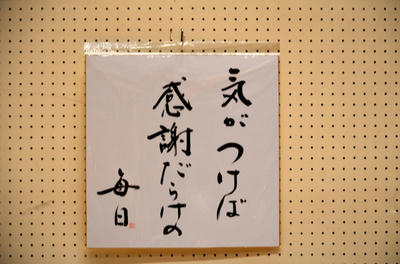 気がつけば
感謝だらけの
毎日